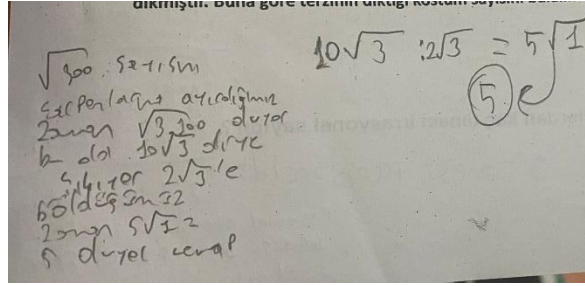 dikmiştir. Buna göre terzinin diktiği kostüm sayısını
√300 sayısını
çarpanlarına ayırdığımız
zaman √3.100 oluyor
bu da 10√3 diye
çıkıyor 2√3'le
böldüğümüz
zaman 5√1 =
5 oluyor cevap
10√3 : 2√3 = 5√1
5